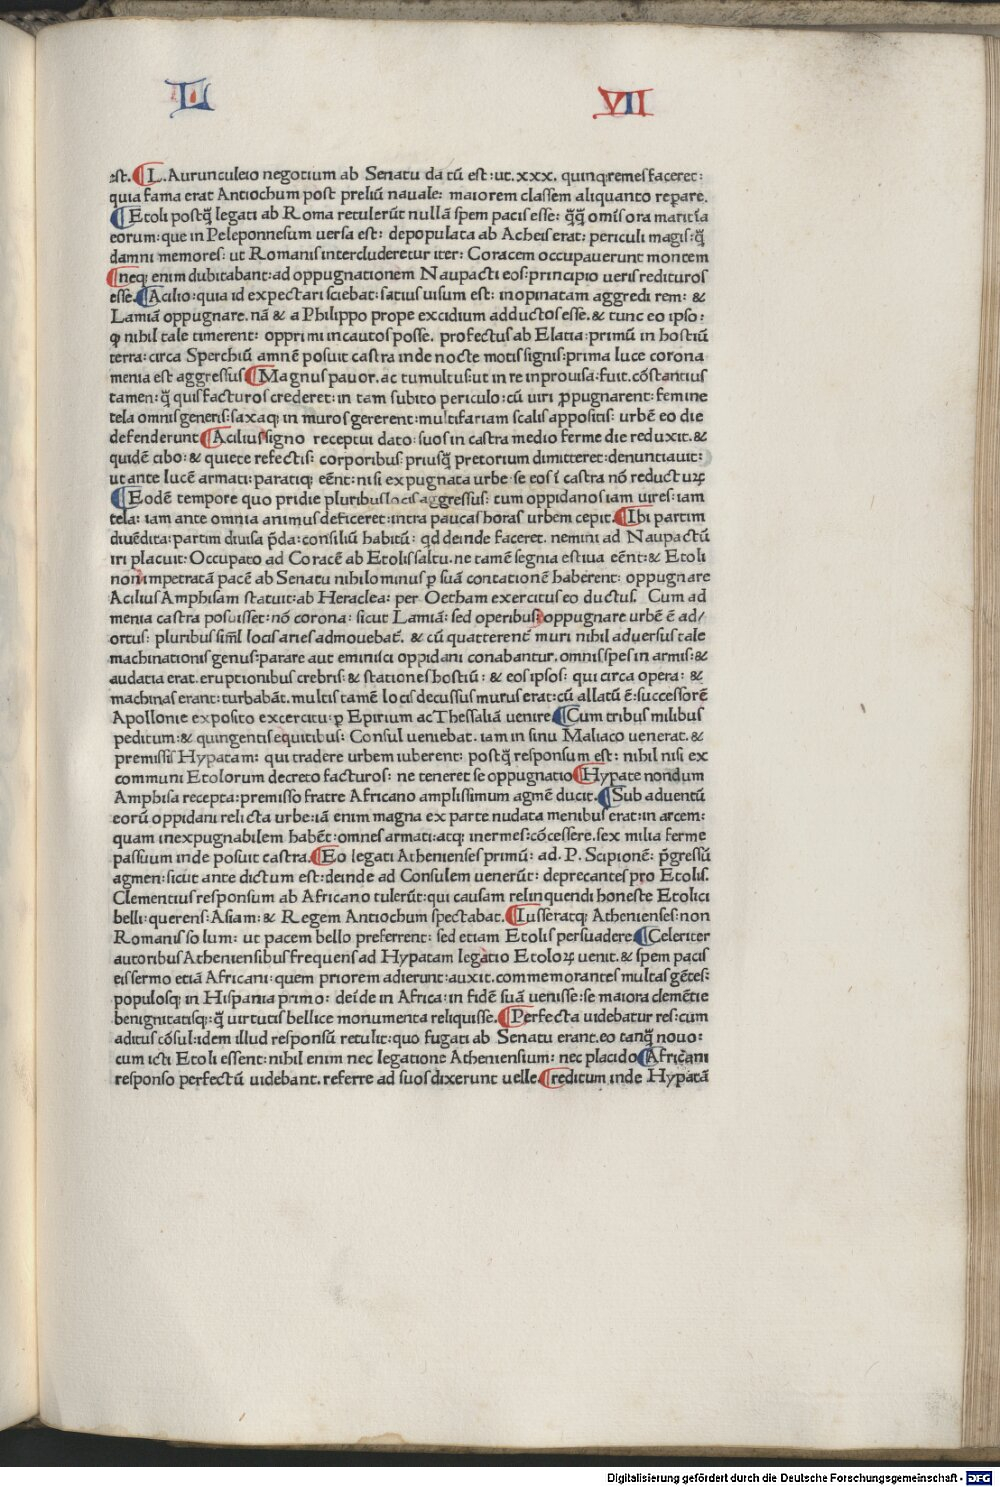 L VII
est. ¶ L. Aurunculeio negotium ab Senatu datū est: ut. xxx. quinqremes faceret:
quia fama erat Antiochum post preliū nauale: maiorem classem aliquanto reparare.
¶ Etoli postq̄ legati ab Roma retulerūt nullā spem pacis esse: q̄q̄ omis ora maritīa
eorum: que in Peleponnesum uersa est: depopulata ab Acheis erat: periculi magis: q̄
damni memores: ut Romanis intercluderetur iter: Coracem occupauerunt montem
¶ neq; enim dubitabant: ad oppugnationem Naupacti eos: principio ueris redituros
esse. ¶ Acilio: quia id expectari sciebat: satius uisum est: inopinatam aggredi rem: &
Lamiā oppugnare. nā & a Philippo prope excidium adductos esse. & tunc eo ipso:
ꝙ nihil tale timerent: opprimi incautos posse. profectus ab Elatia: primū in hostiū
terra: circa Sperchiū amnē posuit castra inde nocte motis signis: prima luce corona
menia est aggressus ¶ Magnus pauor. ac tumultus: ut in re inprouisa: fuit. cōstantius
tamen: q̄ quis facturos crederet: in tam subito periculo: cū uiri ꝓpugnarent: femine
tela omnis generis: saxaq; in muros gererent: multifariam scalis appositis: urbē eo die
defenderunt ¶ Acilius signo receptui dato: suos in castra medio ferme die reduxit. &
quidē cibo: & quiete refectis: corporibus: priusq̄ pretorium dimitteret: denuntiauit:
ut ante lucē armati: paratiq; eēnt: nisi expugnata urbe se eos ī castra nō reducturꝝ
¶ Eodē tempore quo pridie pluribus locis aggressus: cum oppidanos iam uires: iam
tela: iam ante omnia animus deficeret: intra paucas horas urbem cepit. ¶ Ibi partim
diuēdita: partim diuisa p̄da: consiliū habitū: qd deinde faceret. nemini ad Naupactū
iri placuit: Occupato ad Coracē ab Etolis saltu. ne tamē segnia estiua eēnt: & Etoli
non impetratā pacē ab Senatu nihilominus ꝑ suā contationē haberent: oppugnare
Acilius Amphisam statuit: ab Heraclea: per Oetham exercitus eo ductus. Cum ad
menia castra posuisset: nō corona: sicut Lamiā: sed operibus: oppugnare urbē ē ad/
ortus: pluribus sīml locis aries admouebat̄. & cū quatterent̄ muri nihil aduersus tale
machinationis genus: parare aut eminisci oppidani conabantur. omnis spes in armis: &
audatia erat. eruptionibus crebris: & stationes hostiū: & eos ipsos: qui circa opera: &
machinas erant: turbabāt. multis tamē locis decussus murus erat: cū allatū ē: successorē
Apollonie exposito excercitu: ꝑ Epirium ac Thessaliā uenire ¶ Cum tribus milibus
peditum: & quingentis equitibus: Consul ueniebat. iam in sinu Maliaco uenerat. &
premissis Hypatam: qui tradere urbem iuberent: postq̄ responsum est: nihil nisi ex
communi Etolorum decreto facturos: ne teneret se oppugnatio ¶ Hypate nondum
Amphisa recepta: premisso fratre Africano amplissimum agmē ducit. ¶ Sub aduentū
eorū oppidani relicta urbe: iā enim magna ex parte nudata menibus erat: in arcem:
quam inexpugnabilem habēt: omnes armati: atq; inermes: cōcessere. sex milia ferme
passuum inde posuit castra. ¶ Eo legati Athenienses primū: ad. P. Scipionē: p̄gressū
agmen: sicut ante dictum est: deinde ad Consulem uenerūt: deprecantes pro Etolis.
Clementius responsum ab Africano tulerūt: qui causam relinquendi honeste Etolici
belli: querens: Asiam: & Regem Antiochum spectabat. ¶ Iusseratq; Athenienses: non
Romanis solum: ut pacem bello preferrent: sed etiam Etolis persuadere. ¶ Celeriter
autoribus Atheniensibus frequens ad Hypatam legatio Etoloꝝ uenit. & spem pacis
eis sermo etiā Africani: quem priorem adierunt: auxit. commemorantes multas gētes:
populosq; in Hispania primo: deīde in Africa: in fidē suā uenisse: se maiora clemētie
benignitatisq;: q̄ uirtutis bellice monumenta reliquisse. ¶ Perfecta uidebatur res: cum
aditus cōsul: idem illud responsū retulit: quo fugati ab Senatu erant. eo tanq̄ nouo:
cum icti Etoli essent: nihil enim nec legatione Atheniensium: nec placido ¶ Africani
responso perfectū uidebant. referre ad suos dixerunt uelle. ¶ reditum inde Hypatā
Digitalisierung gefördert durch die Deutsche Forschungsgemeinschaft - DFG